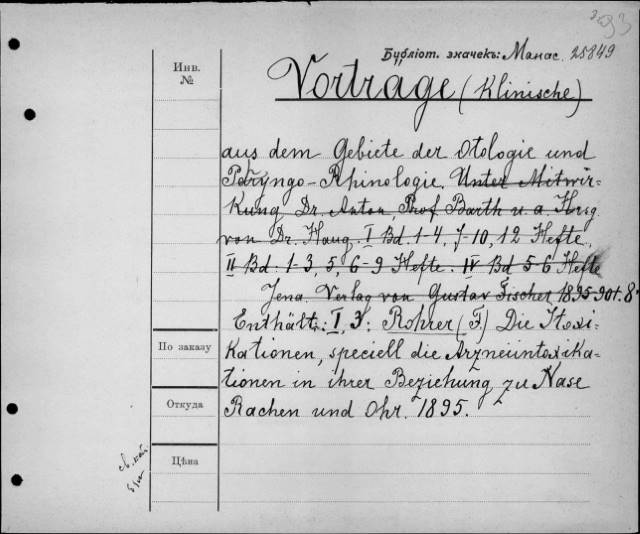 93
Библіот. значекъ: Манас. 25849
Инв.
№
Vorträge (Klinische)
aus dem Gebiete der Otologie und
Pharyngo-Rhinologie. Unter Mitwir-
kung Dr. Anton, Prof. Barth u. a. Hrsg.
von Dr. Haug. I Bd. 1-4, 7-10, 12 Hefte,
II Bd: 1-3, 5, 6-9 Hefte. IV Bd 5-6 Hefte
Jena. Verlag von Gustav Fischer 1895-901. 8°
Enthält: I, 3: Rohrer (F.) Die Itoxi-
По заказу
kationen, speciell die Arzneiintoxika-
tionen in ihrer Beziehung zu Nase
Откуда
Rachen und Ohr. 1895.
Цѣна